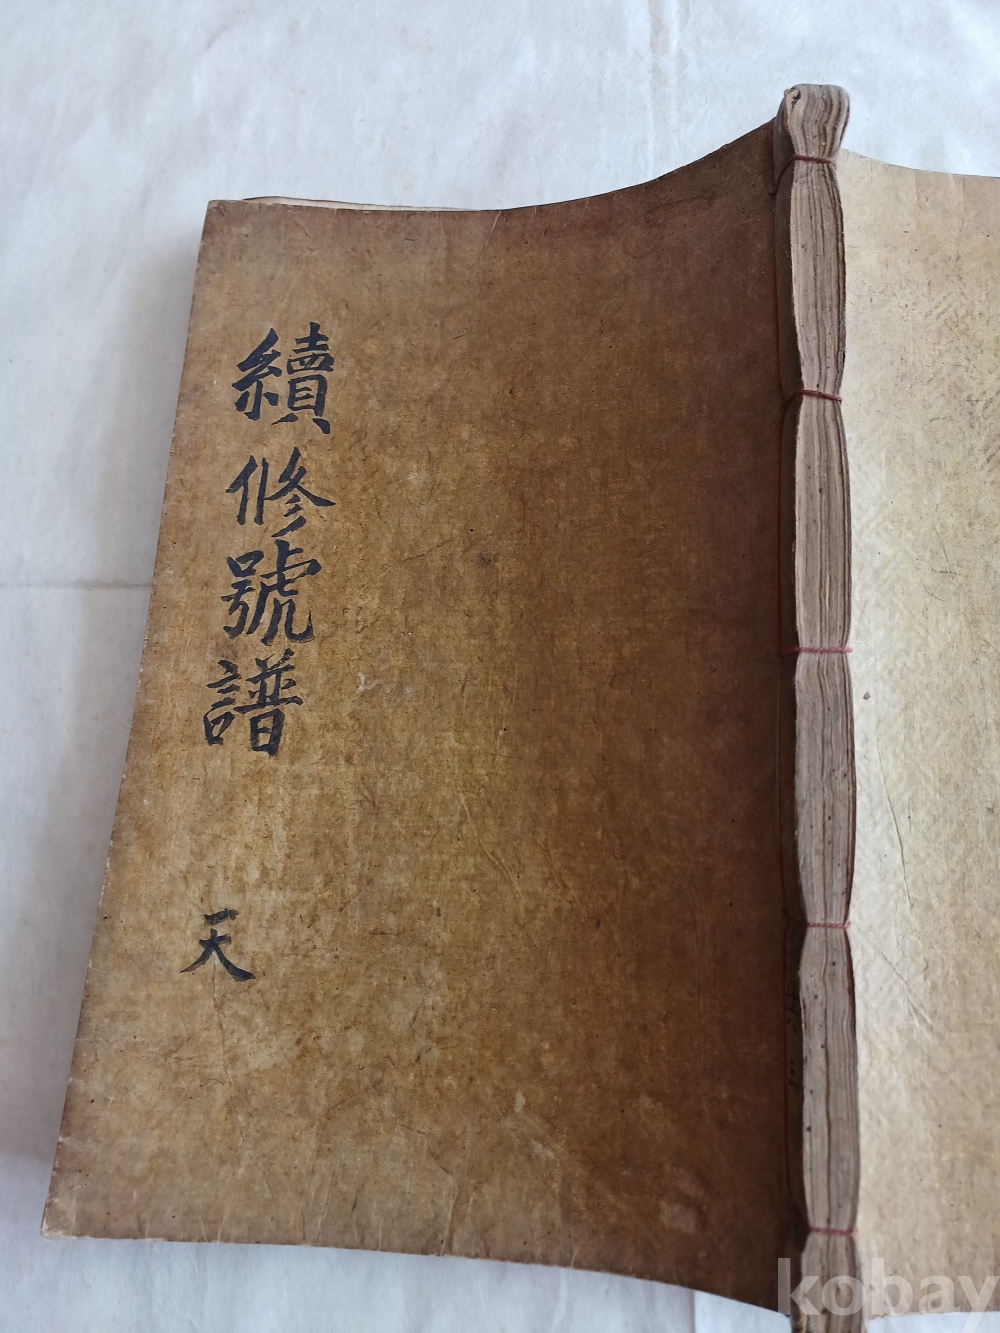 續修號譜
天
kobay